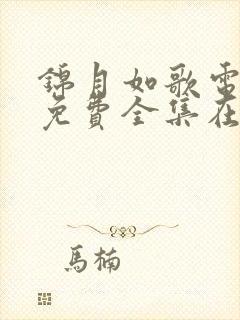 錦月如歌電
免費全集在
馬楠